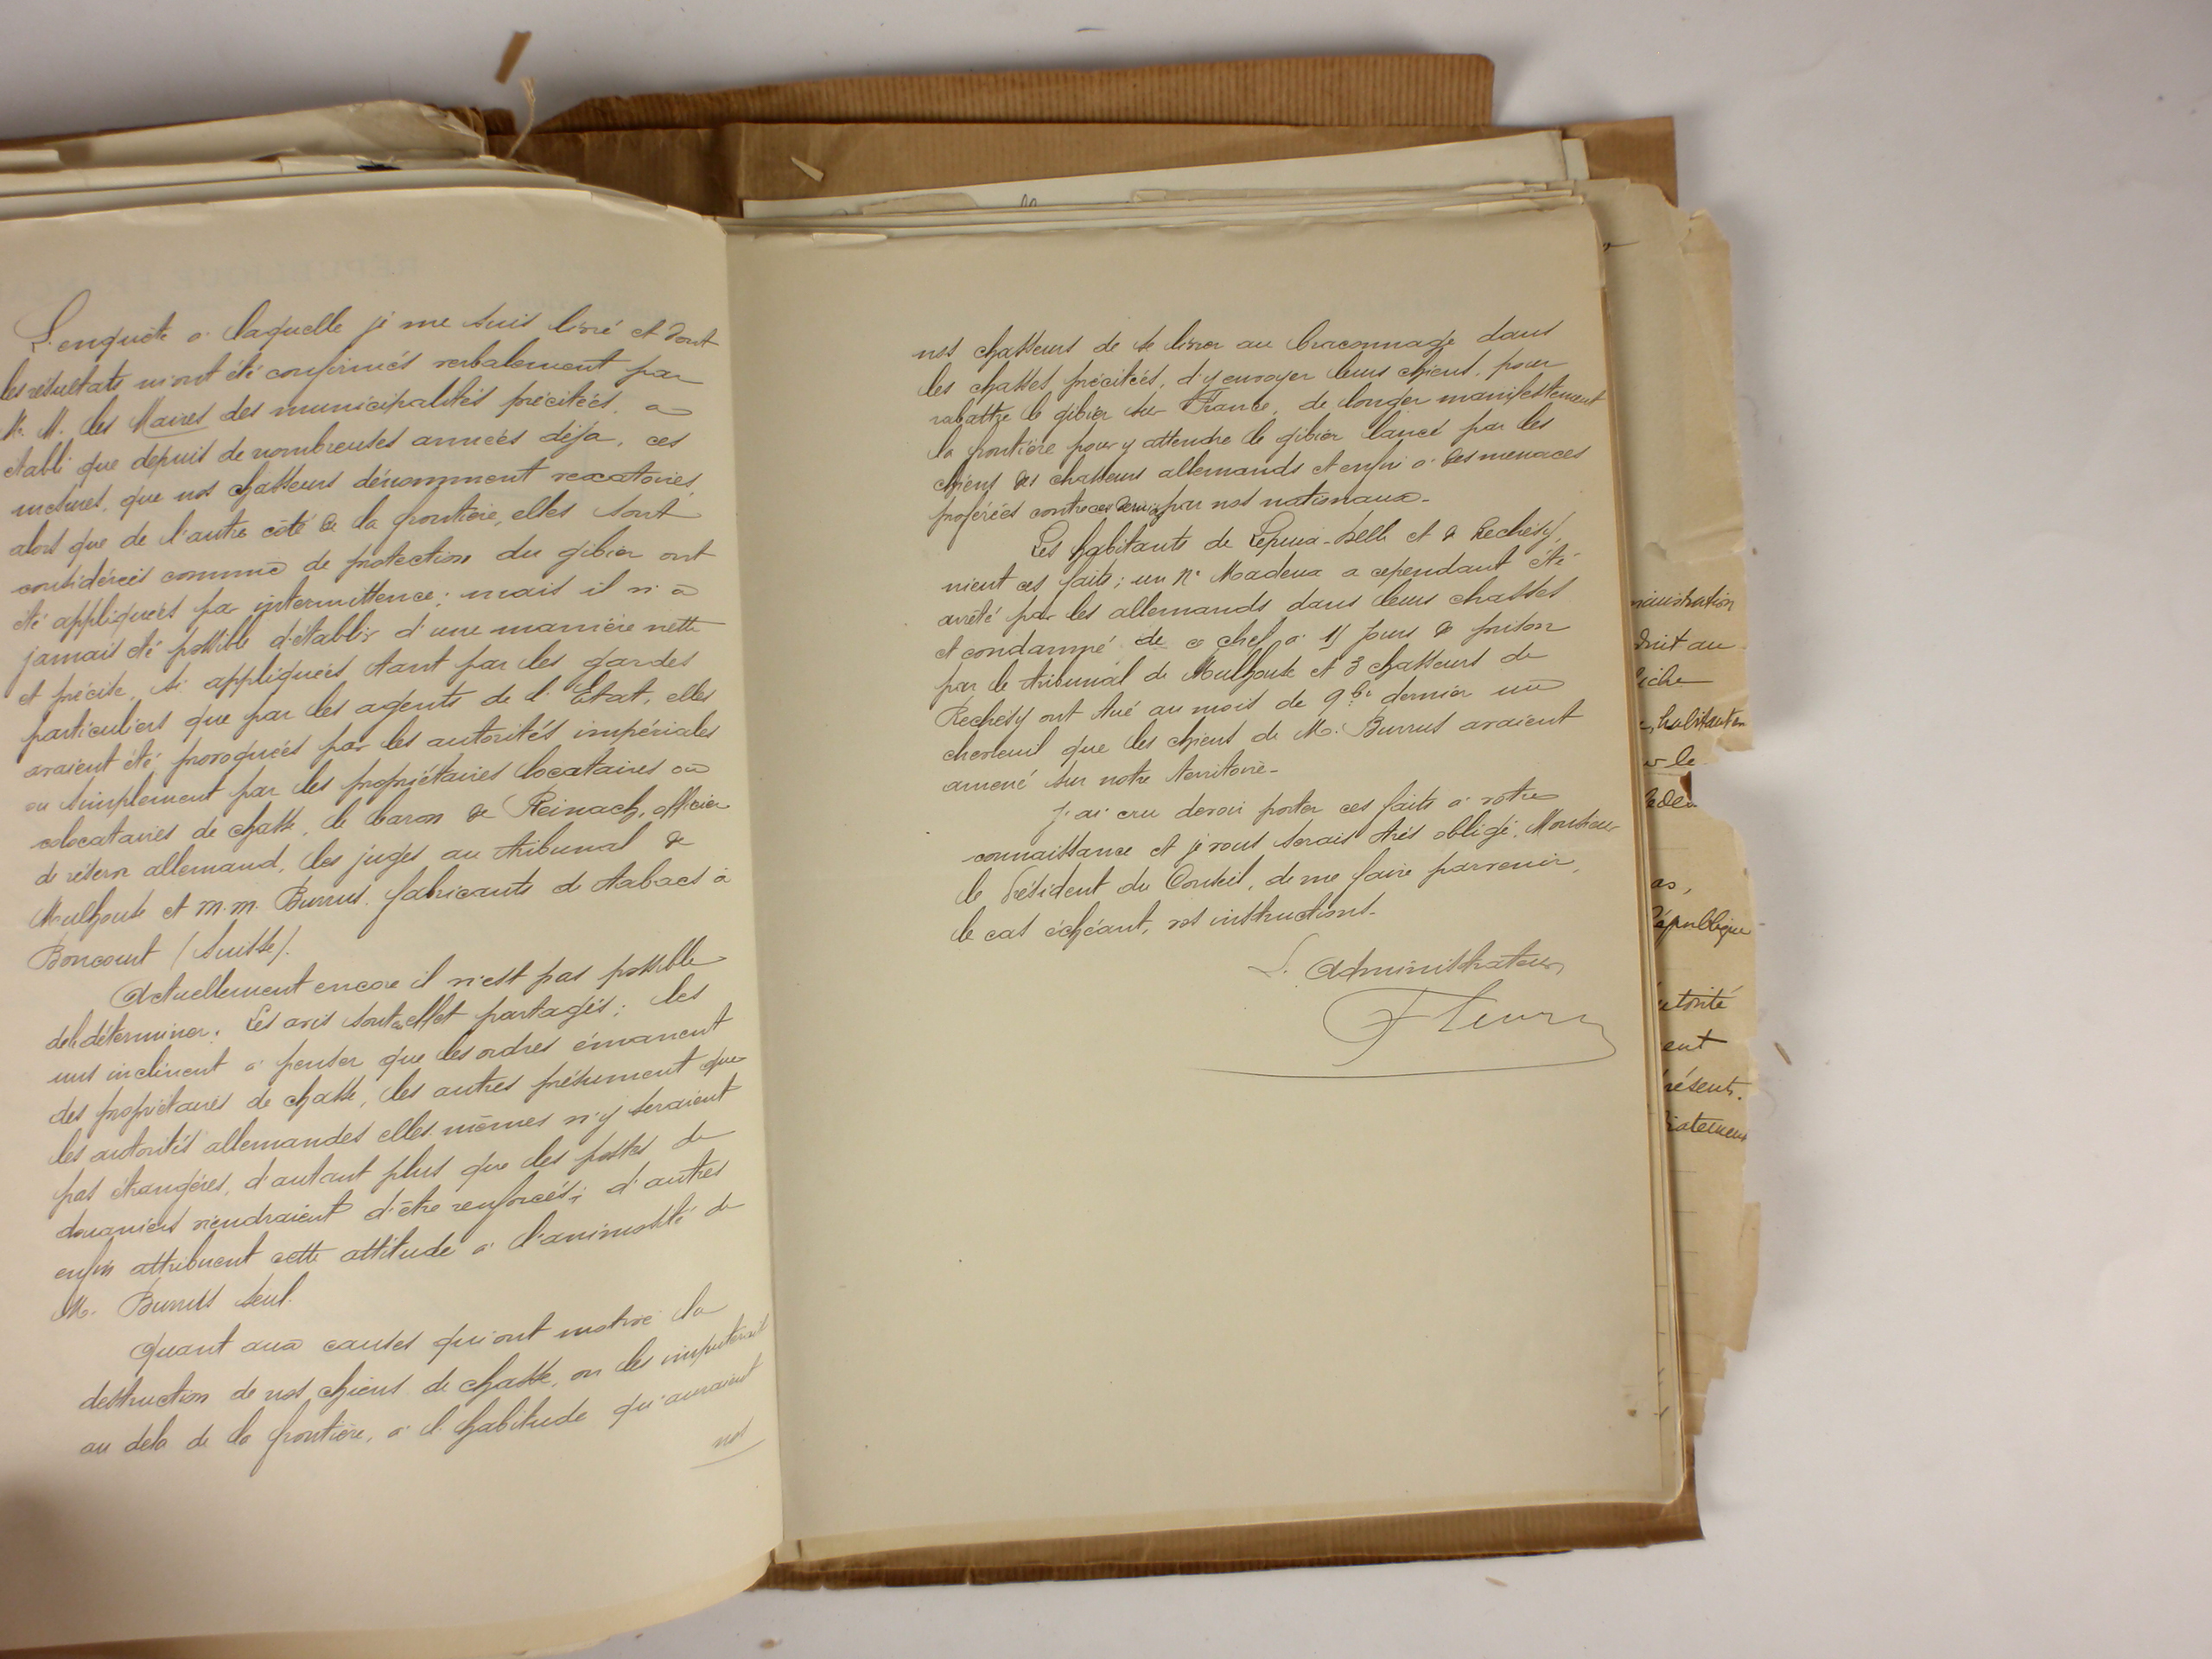 L'enquête à laquelle je me suis livré et dont
les résultats m'ont été confirmés verbalement par
M. M. les Maires des municipalités précitées, a
établi que depuis de nombreuses années déjà, ces
mesures, que nos chasseurs dénomment vexatoires,
alors que de l'autre côté de la frontière, elles sont
considérées comme de protection du gibier ont
été appliquées par intermittence; mais il n'a
jamais été possible d'établir d'une manière nette
et précise, si appliquées tant par les gardes
particuliers que par les agents de l'Etat, elles
avaient été provoquées par les autorités impériales
ou simplement par les propriétaires locataires ou
colocataires de chasse, le baron de Reinach, officier
de réserve allemand, les juges au tribunal de
Mulhouse et M.M. Burrus, fabricants de tabacs à
Boncourt (Suisse).
Actuellement encore il n'est pas possible
de le déterminer. Les avis sont en effet partagés; les
uns inclinent à penser que les ordres émanent
des propriétaires de chasse, les autres présument que
les autorités allemandes elles-mêmes n'y seraient
pas étrangères, d'autant plus que les postes de
douaniers viendraient d'être renforcés; d'autres
enfin attribuent cette attitude à l'animosité de
M. Burrus seul.
Quant aux causes qui ont motivé la
destruction de nos chiens de chasse, on les imputerait
au delà de la frontière, à l'habitude qu'auraient
nos
nos chasseurs de se livrer au braconnage dans
les chasses précitées, d'y envoyer leurs chiens pour
rabattre le gibier sur France, de longer manifestement
la frontière pour y attendre le gibier lancé par les
chiens des chasseurs allemands et enfin à des menaces
proférées contre ces derniers par nos nationaux.
Les habitants de Lepuix-Delle et de Réchésy,
nient ces faits; un Mr Madeux a cependant été
arrêté par les allemands dans leurs chasses
et condamné de ce chef à 15 jours de prison
par le tribunal de Mulhouse et 3 chasseurs de
Réchésy ont tué au mois de 9bre dernier un
chevreuil que les chiens de M. Burrus avaient
amené sur notre territoire.
J'ai cru devoir porter ces faits à votre
connaissance et je vous serais très obligé, Monsieur
le Président du Conseil, de me faire parvenir,
le cas échéant, vos instructions.
L'Administrateur,
Fleury
droit au
habitant en
République